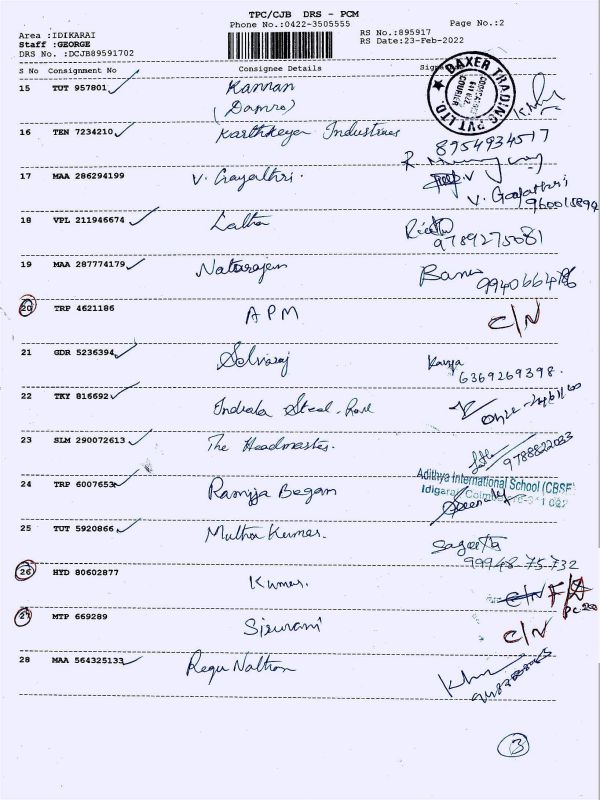 TPC/CJB DRS - PCM
Phone No.:0422-3505555
Page No.:2
Area :IDIKARAI
RS No.:895917
Staff :GEORGE
RS Date:23-Feb-2022
DRS No. :DCJB89591702
S No Consignment No Consignee Details
BAXER TRADING PVT LTD.
15 TUT 957801 Kannan
(Damro)
16 TEN 7234210 Karthikeyan Industries
8954934517
17 MAA 286294199 V. Gayathri.
V. Gayathri
18 VPL 211946674 Latha
9789275081
19 MAA 287774179 Natarajan
Banu
20 TRP 4621186 APM C/N
21 GDR 5236394 Selvaraj Kavya
6369269398.
22 TKY 816692 Steel
23 SLM 290072613 The Headmaster.
9788822033
24 TRP 6007653 Ramija Begam
Adithya International School (CBSE)
25 TUT 5920866 Muthu Kumar.
99948 75732
26 HYD 80602877 Kumar. C/N
27 MTP 669289 Sivarani C/N
28 MAA 564325133 Regu Nathan
3